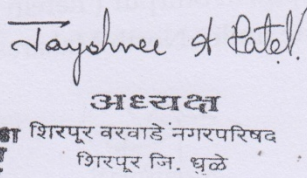 Jayshree A Patel
अध्यक्ष
शिरपूर वरवाडे नगरपरिषद
शिरपूर जि. धुळे